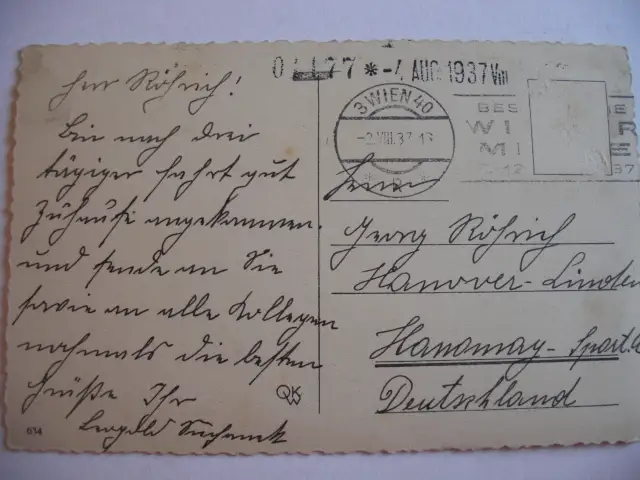 Herr Röhrich!
Bin nach drei
tägiger Fahrt gut
Zuhause angekommen.
und sende an Sie
sowie an alle Kollegen
nochmals die besten
Grüße Ihr
Leopold
614
QKW
77 * -4. AUG. 1937 VIII
3 WIEN 40
-2.VIII.37.
BES
WI
MI
E
R
E
37
Herrn
Georg Röhrich
Hanover-Linden
Hanomag- Sport.
Deutschland